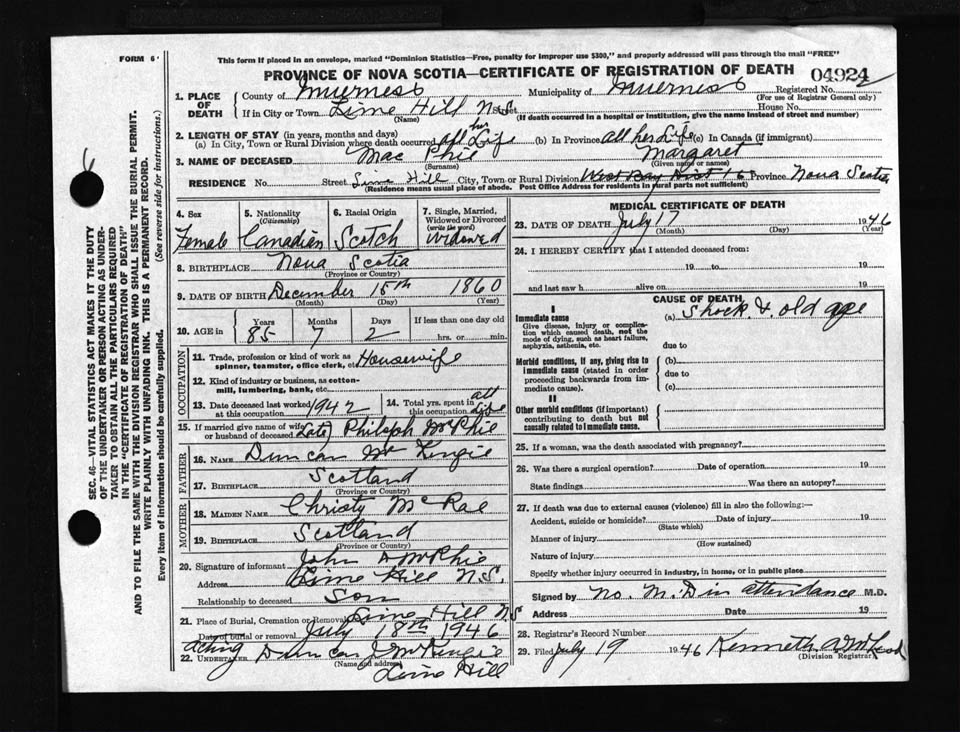 FORM 6
This form if placed in an envelope, marked "Dominion Statistics—Free, penalty for improper use $300," and properly addressed will pass through the mail "FREE"
PROVINCE OF NOVA SCOTIA—CERTIFICATE OF REGISTRATION OF DEATH 04924
1. PLACE OF DEATH County of Inverness Municipality of Inverness Registered No.
(For use of Registrar General only)
If in City or Town Lime Hill N.S. Street House No.
(Name) (If death occurred in a hospital or institution, give the name instead of street and number)
2. LENGTH OF STAY (in years, months and days)
(a) In City, Town or Rural Division where death occurred all her Life (b) In Province all her Life (c) In Canada (if immigrant)
3. NAME OF DECEASED Mac Phie Margaret
(Surname) (Given name or names)
RESIDENCE No. Street Lime Hill City, Town or Rural Division West Bay Dist 16 Province Nova Scotia
(Residence means usual place of abode. Post Office Address for residents in rural parts not sufficient)
4. Sex 5. Nationality (Citizenship) 6. Racial Origin 7. Single, Married, Widowed or Divorced (write the word)
Female Canadian Scotch Widowed
8. BIRTHPLACE Nova Scotia
(Province or Country)
9. DATE OF BIRTH December 15th 1860
(Month) (Day) (Year)
10. AGE in Years Months Days If less than one day old
85 7 2 hrs. or min.
OCCUPATION
11. Trade, profession or kind of work as spinner, teamster, office clerk, etc. Housewife
12. Kind of industry or business, as cotton-mill, lumbering, bank, etc.
13. Date deceased last worked at this occupation 1942 14. Total yrs. spent in this occupation all life
15. If married give name of wife or husband of deceased (Late) Philoph McPhie
FATHER
16. NAME Duncan McKengie
17. BIRTHPLACE Scotland
(Province or Country)
MOTHER
18. MAIDEN NAME Christy McRae
19. BIRTHPLACE Scotland
(Province or Country)
20. Signature of informant John A McPhie
Address Lime Hill N.S.
Relationship to deceased Son
21. Place of Burial, Cremation or Removal Lime Hill N.S
Date of burial or removal July 18th 1946
Acting
22. UNDERTAKER Duncan J McKengie
(Name and address)
Lime Hill
MEDICAL CERTIFICATE OF DEATH
23. DATE OF DEATH July 17 1946
(Month) (Day) (Year)
24. I HEREBY CERTIFY that I attended deceased from:
19 to 19
and last saw h alive on 19
CAUSE OF DEATH
I
Immediate cause (a) Shock & old age
Give disease, injury or complication which caused death, not the mode of dying, such as heart failure, asphyxia, asthenia, etc.
due to
Morbid conditions, if any, giving rise to immediate cause (stated in order proceeding backwards from immediate cause).
(b)
due to
(c)
II
Other morbid conditions (if important) contributing to death but not causally related to immediate cause.
25. If a woman, was the death associated with pregnancy?
26. Was there a surgical operation? Date of operation 19
State findings Was there an autopsy?
27. If death was due to external causes (violence) fill in also the following:—
Accident, suicide or homicide? Date of injury 19
(State which)
Manner of injury
(How sustained)
Nature of injury
Specify whether injury occurred in industry, in home, or in public place
Signed by No. M.D in attendance M.D.
Address Date 19
28. Registrar's Record Number
29. Filed July 19 1946 Kenneth A McLeod
(Division Registrar)
SEC. 46—VITAL STATISTICS ACT MAKES IT THE DUTY
OF THE UNDERTAKER OR PERSON ACTING AS UNDER-
TAKER TO OBTAIN ALL THE PARTICULARS REQUIRED
IN THE "CERTIFICATE OF REGISTRATION OF DEATH"
AND TO FILE THE SAME WITH THE DIVISION REGISTRAR WHO SHALL ISSUE THE BURIAL PERMIT.
WRITE PLAINLY WITH UNFADING INK. THIS IS A PERMANENT RECORD.
Every item of information should be carefully supplied. (See reverse side for instructions.)